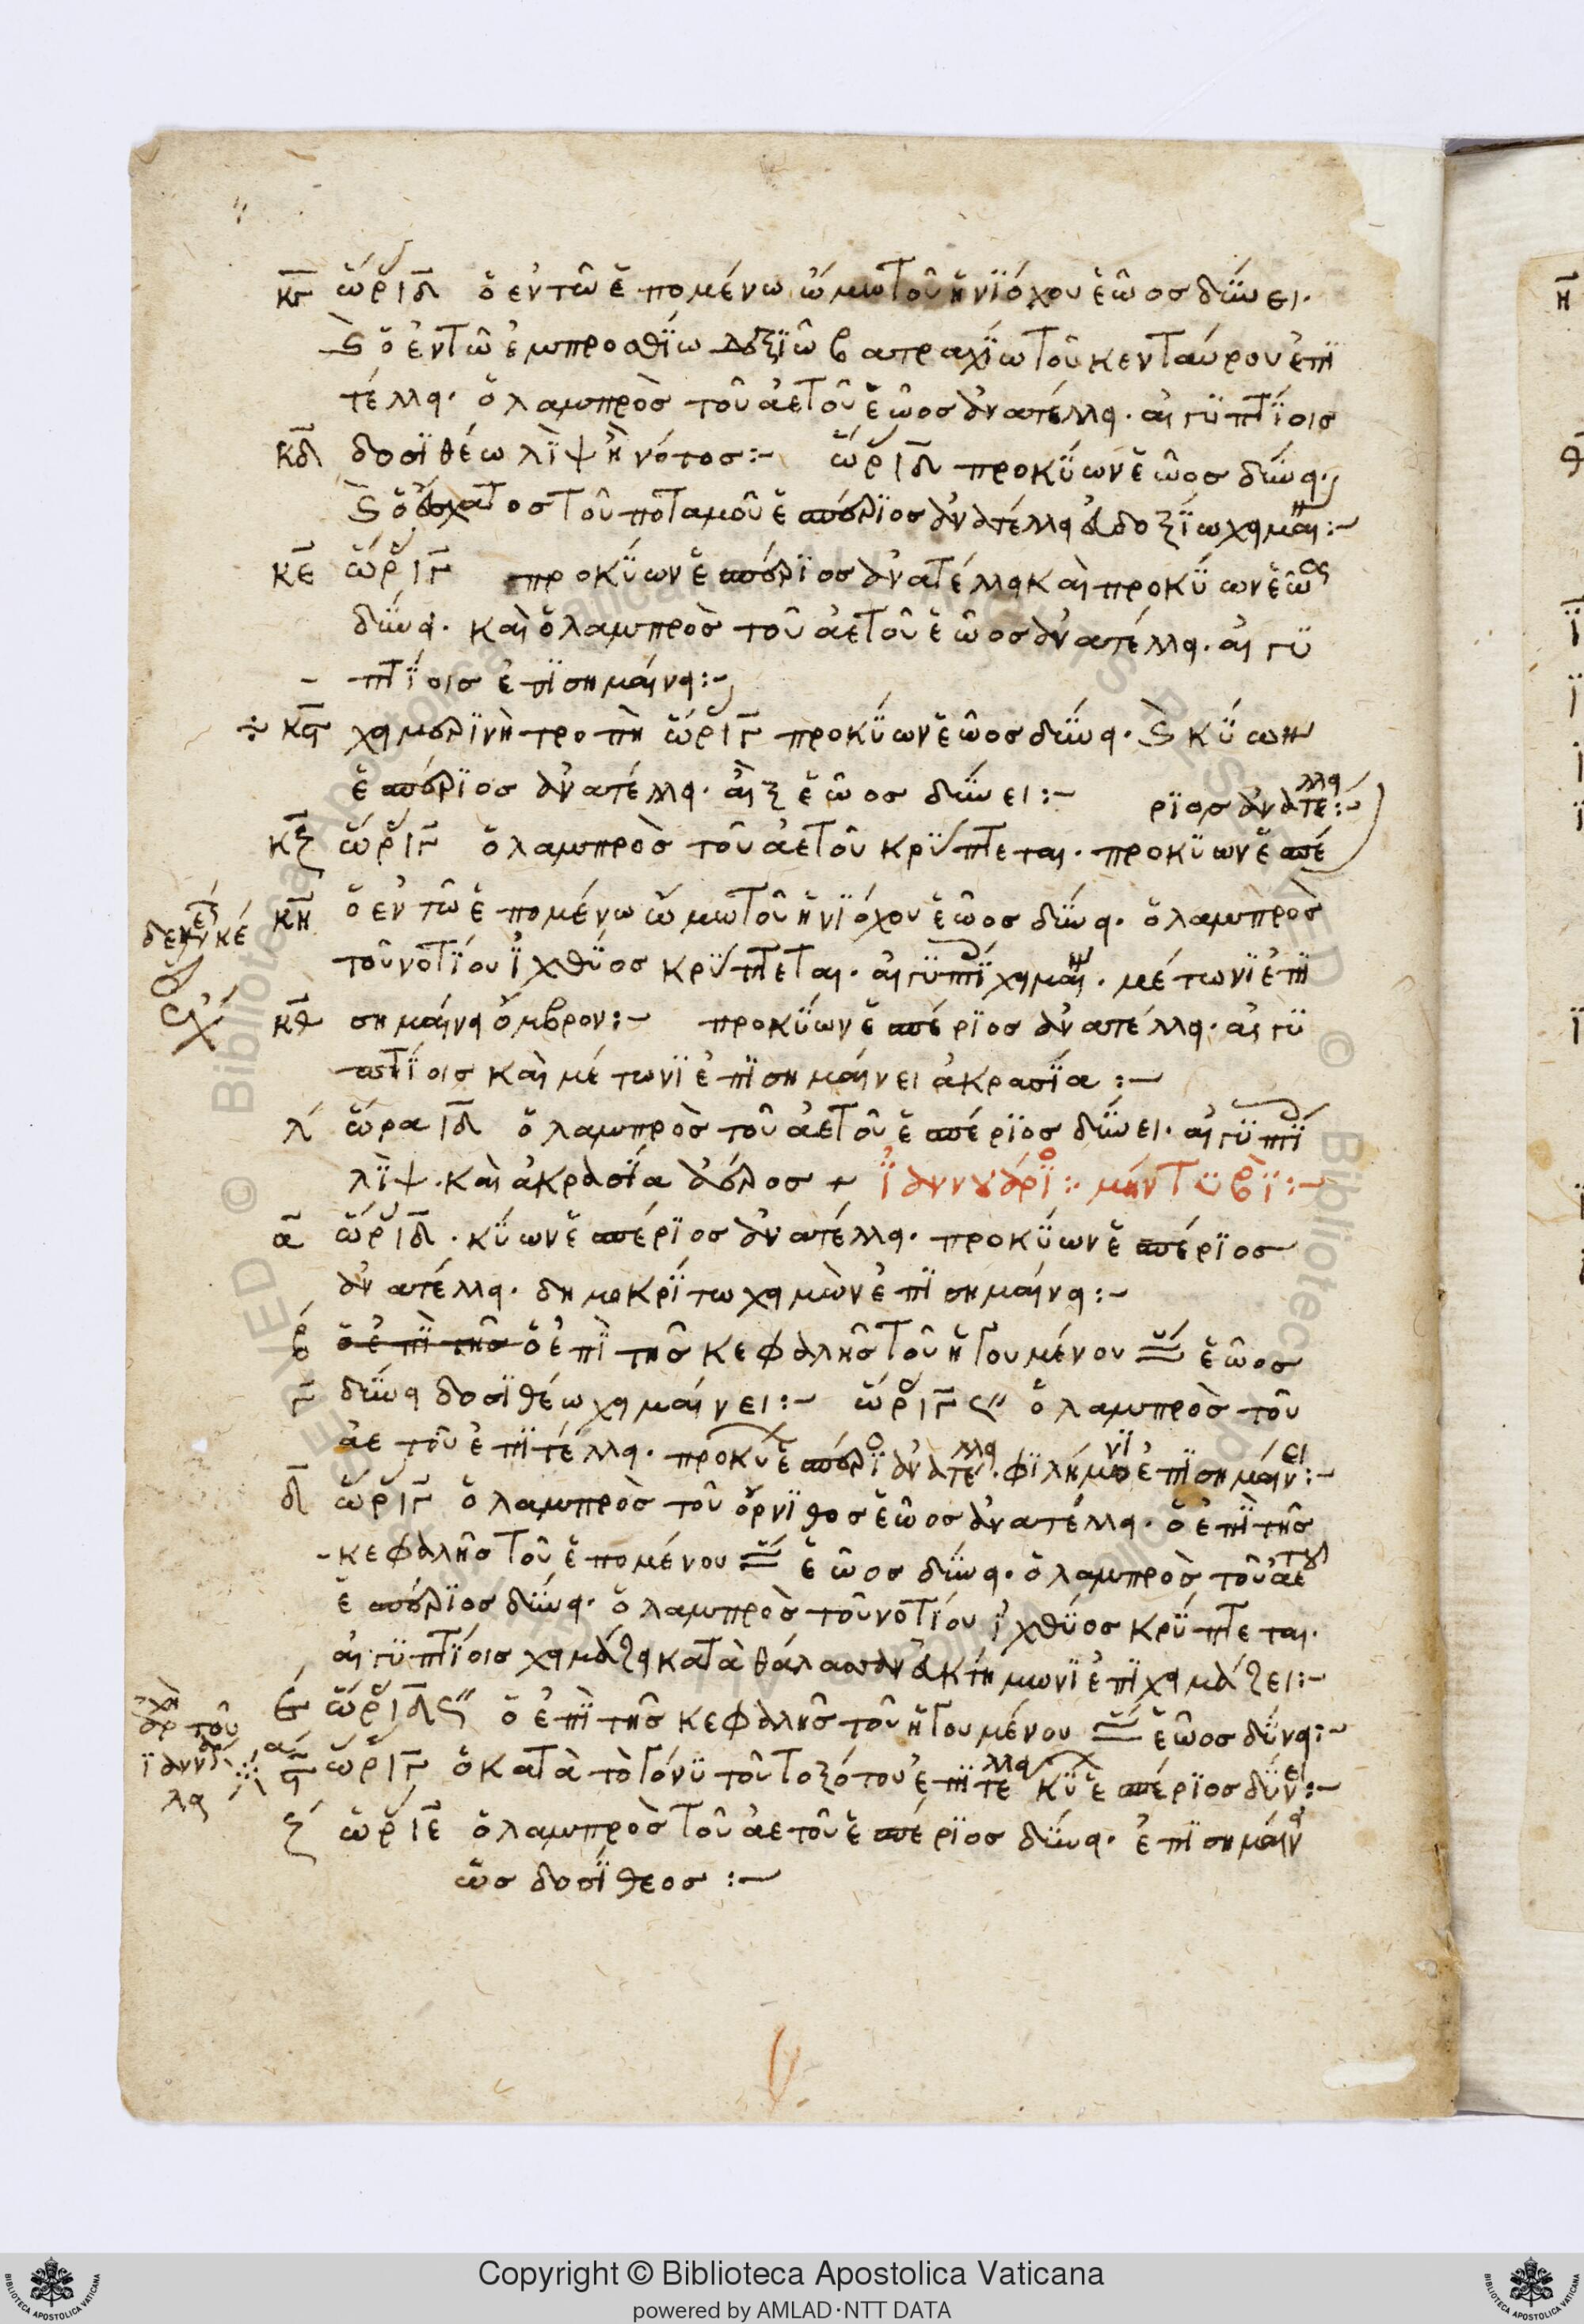 κγ ὥρ ιδ ὁ ἐν τῶ ἑπομένω ὤμω τοῦ ἡνϊόχου ἑῶος δύνει·
ὁ ἐν τῶ ἐμπροσθίω δεξϊῶ βατραχίω τοῦ κενταύρου ἐπι
τέλλει· ὁ λαμπρὸς τοῦ ἀετοῦ ἑῶος ἀνατέλλει· αἰγϋπτίοις
κδ δοσϊθέω λὶψ ἢ νότος:~ ὥρ ιδ προκύων ἑῶος δύνει·
ὁ ἔσχατος τοῦ ποταμοῦ ἑσπέριος ἀνατέλλει
κε ὥρ ιγ προκύων ἑσπέριος ἀνατέλλει καὶ προκύων ἑῶος
δύνει· καὶ ὁ λαμπρὸς τοῦ ἀετοῦ ἑῶος ἀνατέλλει· αἰγϋ
πτίοις ἐπισημαίνει:~
κϛ χειμερινὴ τροπὴ ὥρ ιγ προκύων ἑῶος δύνει· κύων
ἑσπέριος ἀνατέλλει· αἲξ ἑῶος δύνει:~ ριος ἀνατέλλει:~
κζ ὥρ ιγ ὁ λαμπρὸς τοῦ ἀετοῦ κρύπτεται· προκύων ἑσπέ
κη ὁ ἐν τῶ ἑπομένω ὤμω τοῦ ἡνϊόχου ἑῶος δύνει· ὁ λαμπρὸς
τοῦ νοτίου ἰχθύος κρύπτεται· αἰγϋπτϊ χειμαι· μέτωνι ἐπι
κθ σημαίνει ὄμβρον:~ προκύων ἑσπέριος ἀνατέλλει· αἰγϋ
πτίοις καὶ μέτωνι ἐπισημαίνει ἀκρασία:~
λ ὥρα ιδ ὁ λαμπρὸς τοῦ ἀετοῦ ἑσπέριος δύνει· αἰγϋπτϊ
λὶψ· καὶ ἀκρασία ἀέρος + ϊαννουάριο:· μὴν τϋβϊ:~
α ὥρ ιδ· κύων ἑσπέριος ἀνατέλλει· προκύων ἑσπέριος
ἀνατέλλει· δημοκρίτω χειμὼν ἐπισημαίνει:~
β ὁ ἐπὶ τῆς ὁ ἐπὶ τῆς κεφαλῆς τοῦ ἡγουμένου ἑῶος
γ δύνει δοσϊθέω χειμαίνει:~ ὥρ ιγ ὁ λαμπρὸς τοῦ
ἀετοῦ ἐπιτέλλει· προκυ ἑσπέριο ἀνατέλλει· φιλήμονι ἐπισημαίνει:~
δ ὥρ ιγ ὁ λαμπρὸς τοῦ ὄρνιθος ἑῶος ἀνατέλλει· ὁ ἐπὶ τῆς
κεφαλῆς τοῦ ἑπομένου ἑῶος δύνει· ὁ λαμπρὸς τοῦ ἀετοῦ
ἑσπέριος δύνει· ὁ λαμπρὸς τοῦ νοτίου ἰχθύος κρύπτεται·
αἰγϋπτίοις χειμάζει κατὰ θάλασσαν
ε ὥρ ιδ ὁ ἐπὶ τῆς κεφαλῆς τοῦ ἡγουμένου ἑῶος δύνει:~
ϛ ὥρ ιγ ὁ κατὰ τὸ γόνυ τοῦ τοξότου ἐπιτέλλει κυ ἑσπέριος δύνει:~
ζ ὥρ ιε ὁ λαμπρὸς τοῦ ἀετοῦ ἑσπέριος δύνει· ἐπισημαίνει
ὡς δοσίθεος:~
Copyright © Biblioteca Apostolica Vaticana
powered by AMLAD·NTT DATA